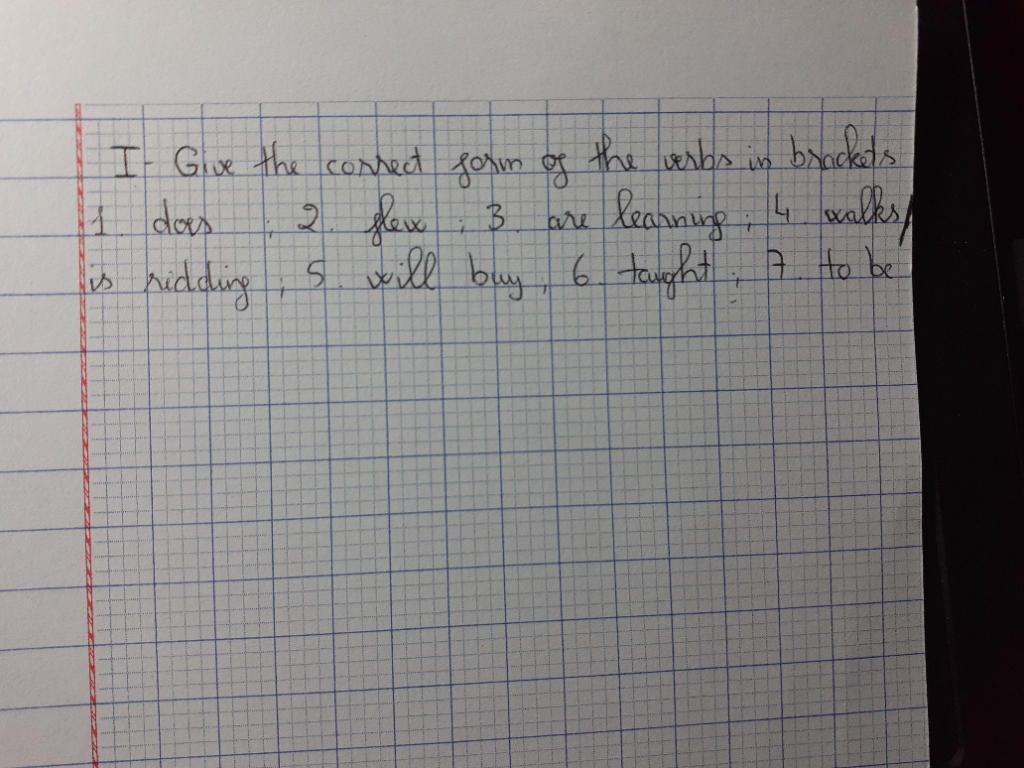 I- Give the correct form of the verbs in brackets
1. does ; 2. flew ; 3. are learning ; 4. walks/
is ridding ; 5. will buy ; 6. taught ; 7. to be